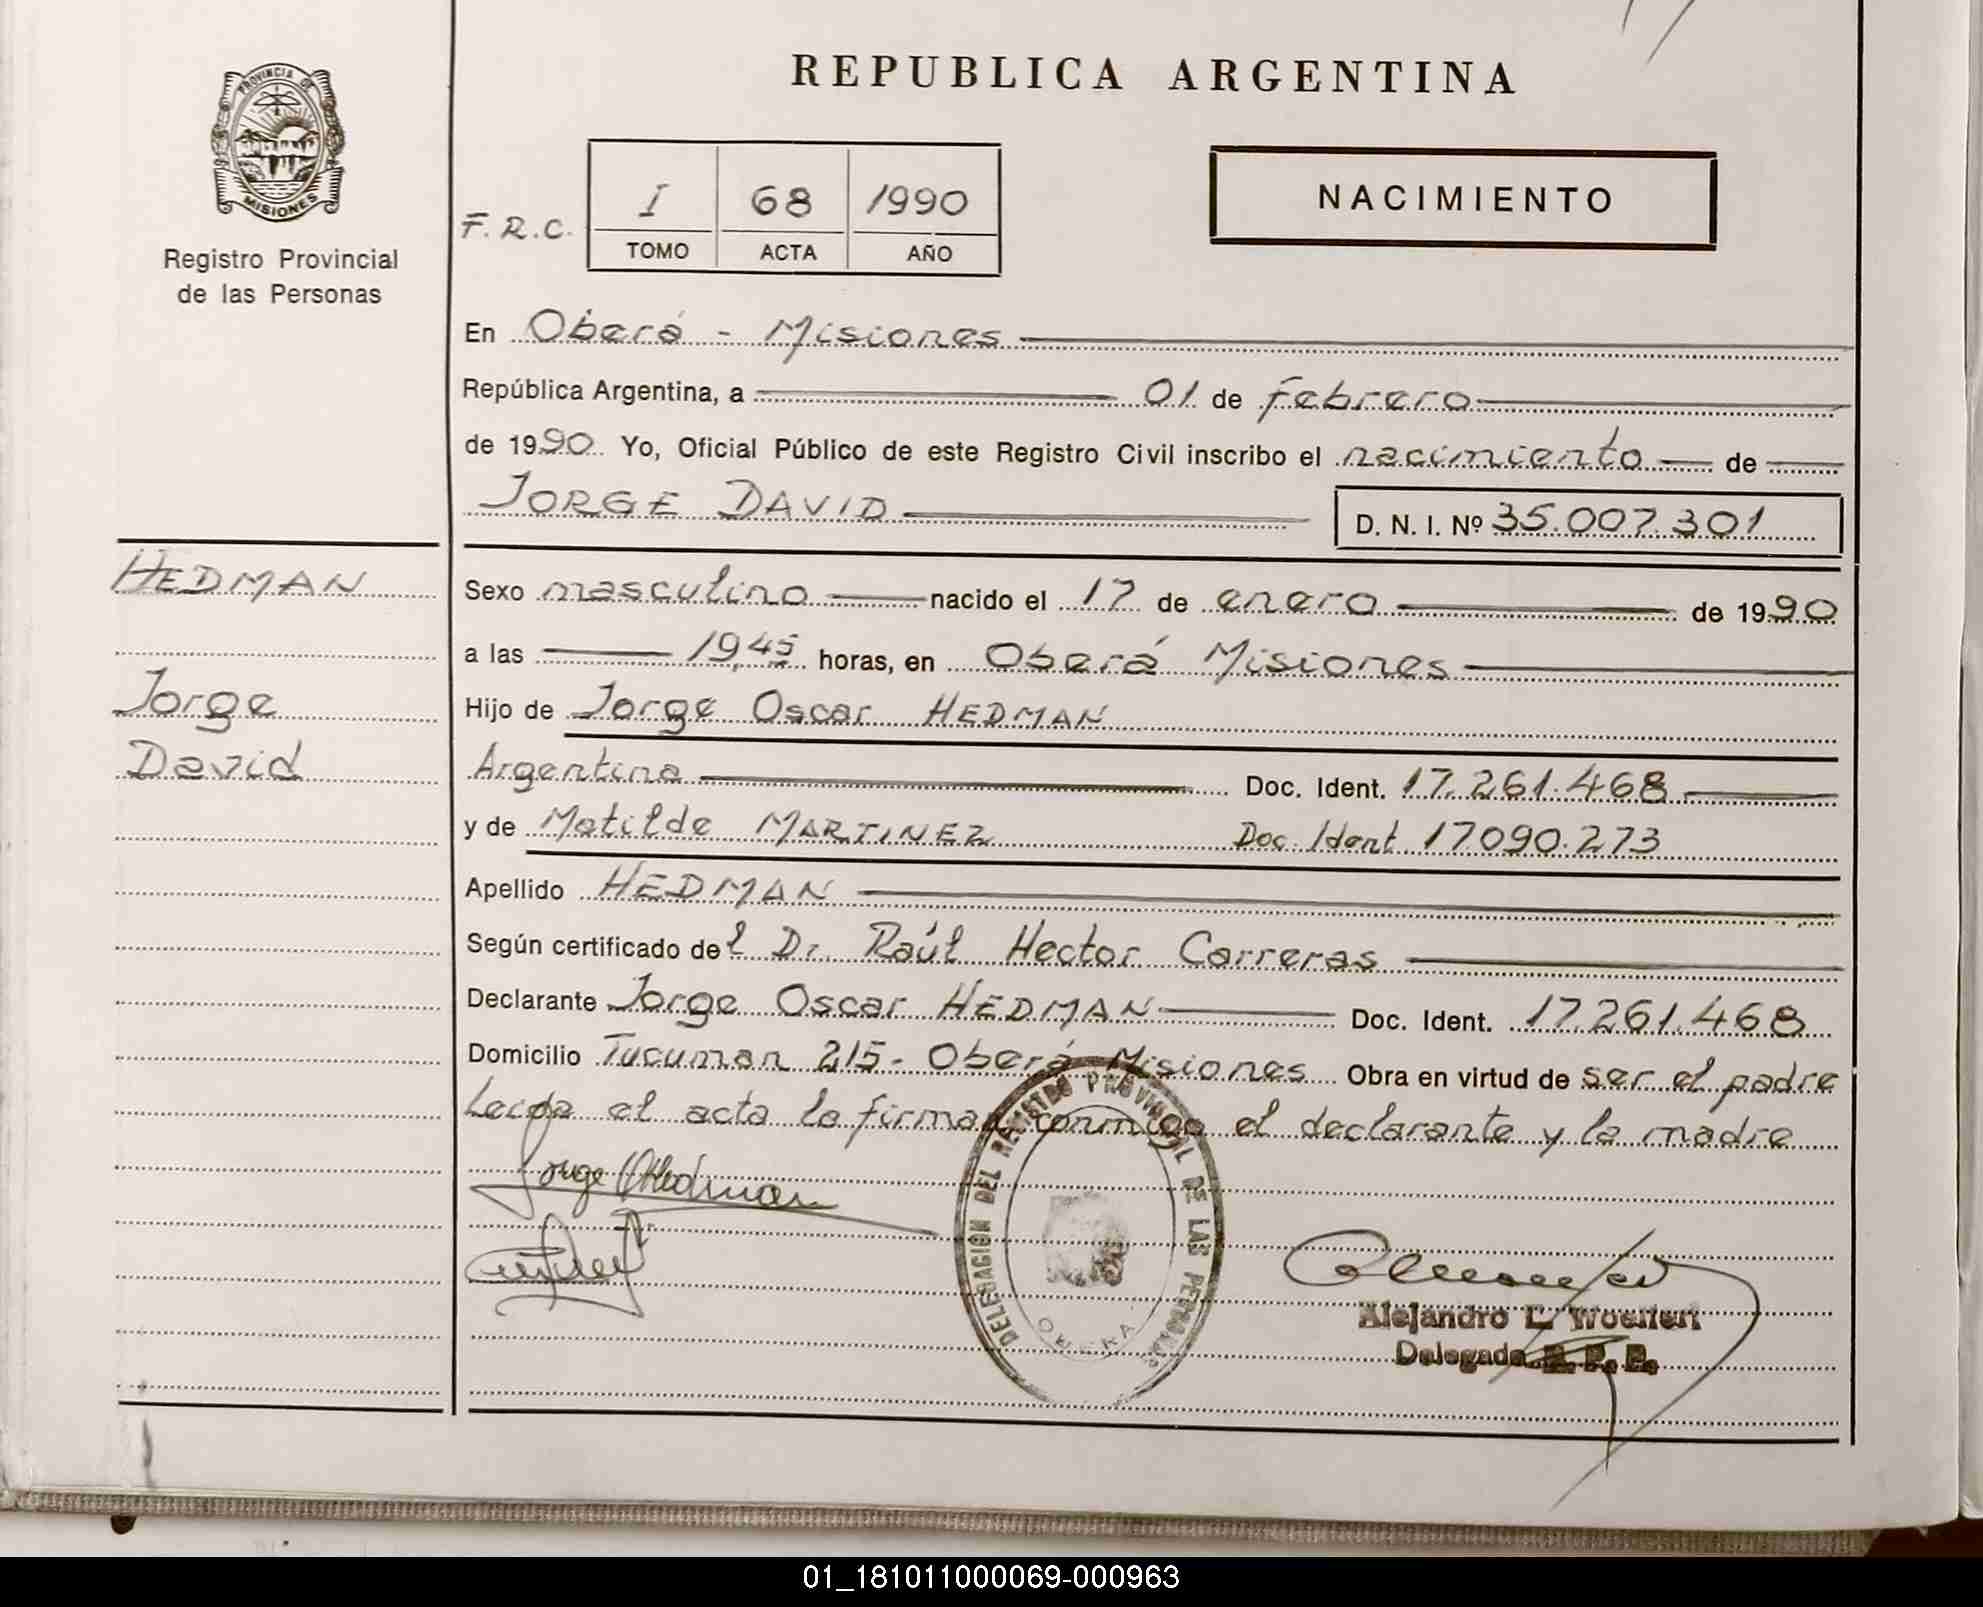 REPUBLICA ARGENTINA
PROVINCIA DE
MISIONES
Registro Provincial
de las Personas
F.R.C.
I 68 1990
TOMO ACTA AÑO
NACIMIENTO
En Oberá - Misiones
República Argentina, a 01 de febrero
de 1990 Yo, Oficial Público de este Registro Civil inscribo el nacimiento de
JORGE DAVID D. N. I. Nº 35.007.301
HEDMAN
Jorge
David
Sexo masculino nacido el 17 de enero de 1990
a las 19,45 horas, en Oberá Misiones
Hijo de Jorge Oscar HEDMAN
Argentina Doc. Ident. 17.261.468
y de Matilde MARTINEZ Doc. Ident 17090.273
Apellido HEDMAN
Según certificado del Dr. Raúl Hector Carreras
Declarante Jorge Oscar HEDMAN Doc. Ident. 17.261.468
Domicilio Tucuman 215 - Oberá Misiones Obra en virtud de ser el padre
Leida el acta la firman conmigo el declarante y la madre
Jorge O Hedman
DELEGACION DEL REGISTRO PROVINCIAL DE LAS PERSONAS
OBERA
Alejandro L.
Delegado R. P. P.
01_181011000069-000963